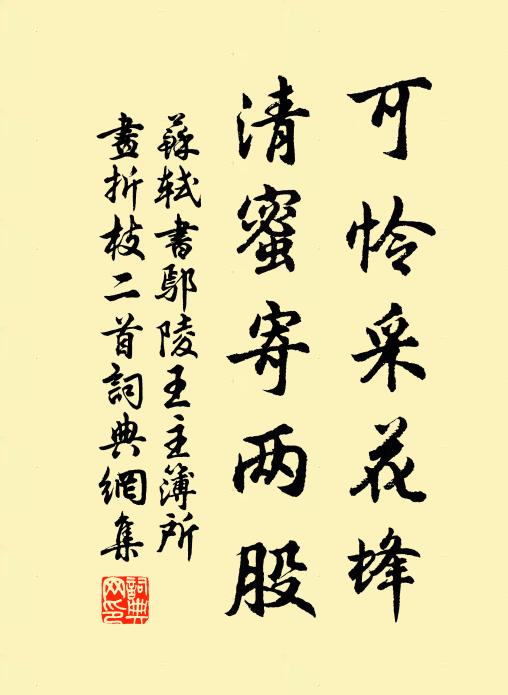 可怜采花蜂
清蜜寄两股
蘇軾書鄢陵王主簿所
畫折枝二首詞典網集
詞典
网印